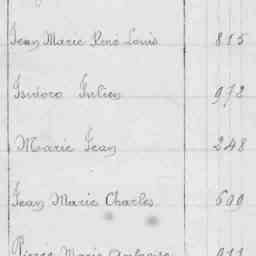 Jean Marie René Louis 815
Isidore Julien 972
Marie Jean 248
Jean Marie Charles 699
Pierre Marie Ambroise 911